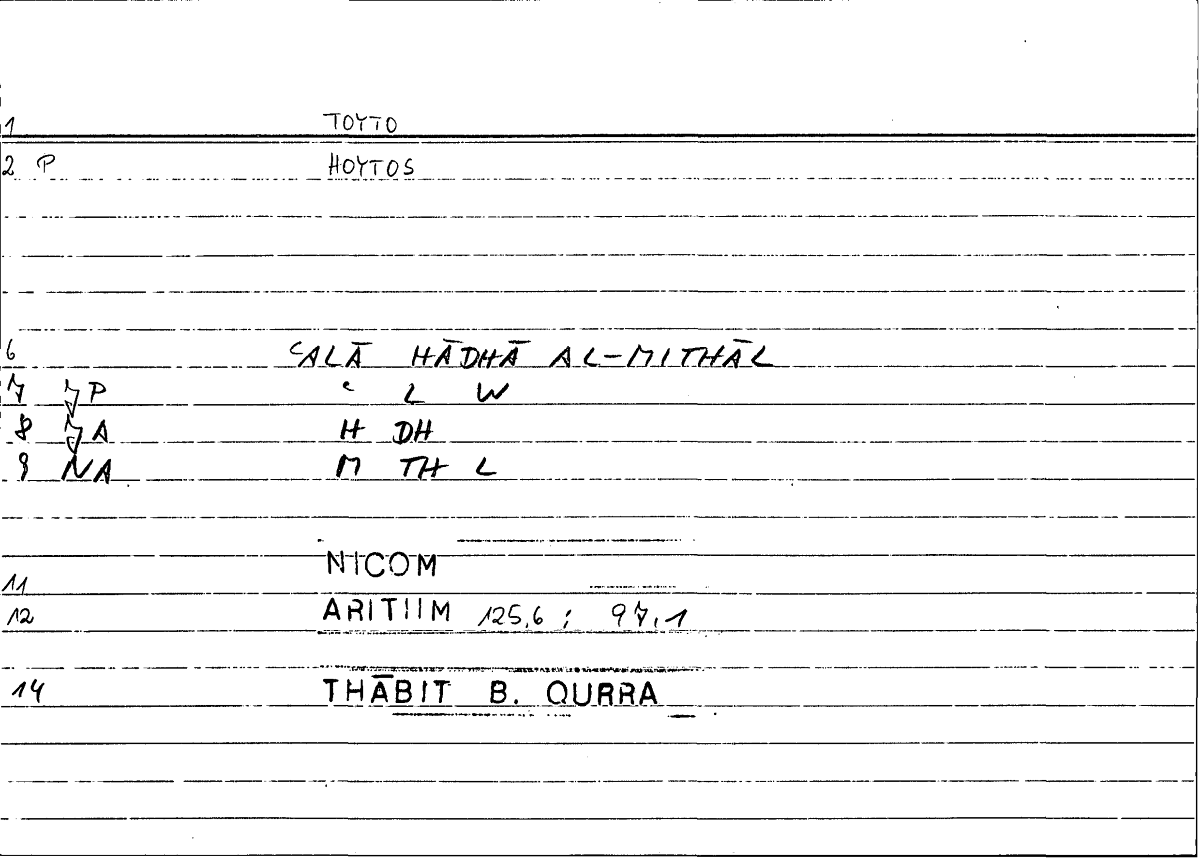 1 TOYTO
2 P HOYTOS
6 ʿALĀ HĀDHĀ AL-MITHĀL
7 ʿ L W
8 H DH
9 NA M TH L
11 NICOM
12 ARITHM 125,6 ; 97,1
14 THĀBIT B. QURRA